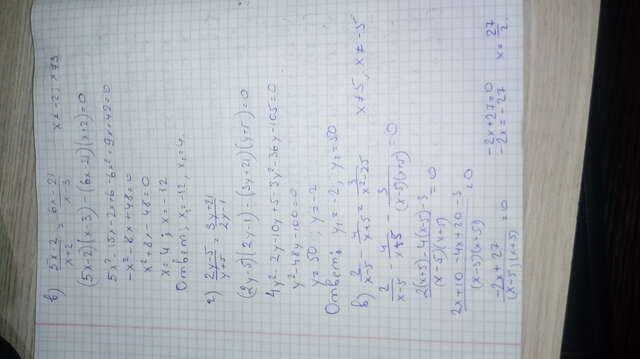 б) 5x-2/x+2 = 6x-21/x-3   x≠-2; x≠3
(5x-2)(x-3)-(6x-21)(x+2)=0
5x²-15x-2x+6-6x²+9x+42=0
-x²-8x+48=0
x²+8x-48=0
x=4; x=-12
Ответ: x₁=-12, x₂=4.
г) 2y-5/y+5 = 3y+21/2y-1
(2y-5)(2y-1)-(3y+21)(y+5)=0
4y²-2y-10y+5-3y²-36y-105=0
y²-48y-100=0
y=50; y=-2
Ответ: y₁=-2, y₂=50
в) 2/x-5 - 4/x+5 = 3/x²-25   x≠5, x≠-5
2/x-5 - 4/x+5 - 3/(x-5)(x+5) = 0
2(x+5)-4(x-5)-3/(x-5)(x+5) = 0
2x+10-4x+20-3/(x-5)(x+5) = 0
-2x+27/(x-5)(x+5) = 0   -2x+27=0
-2x=-27
x=27/2